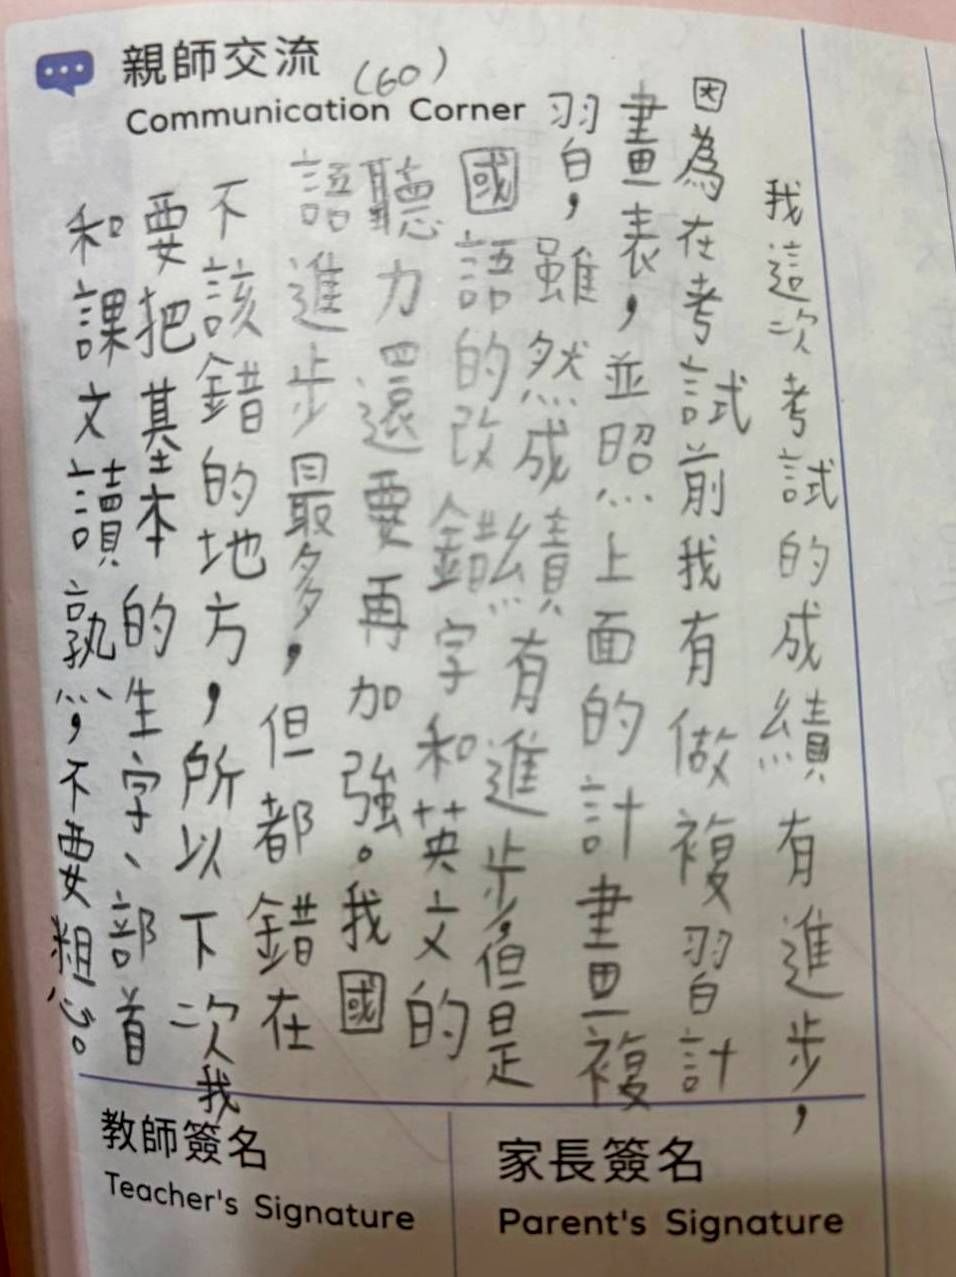 親師交流
(60)
Communication Corner
我這次考試的成績有進步，
因為在考試前我有做複習計
畫表，並照上面的計畫複
習，雖然成績有進步，但是
國語的改錯字和英文的
聽力還要再加強。我國
語進步最多，但都錯在
不該錯的地方，所以下次我
要把基本的生字、部首
和課文讀熟，不要粗心。
教師簽名
Teacher's Signature
家長簽名
Parent's Signature